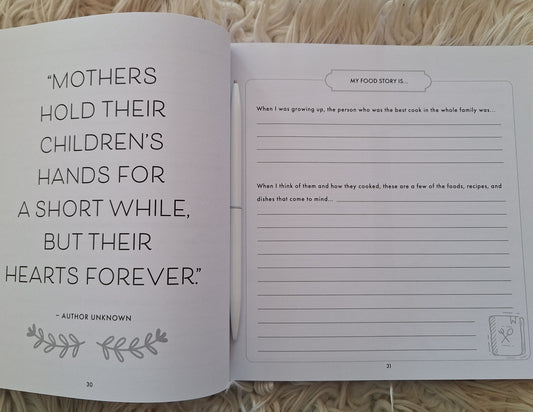 “MOTHERS
HOLD THEIR
CHILDREN’S
HANDS FOR
A SHORT WHILE,
BUT THEIR
HEARTS FOREVER.”
– AUTHOR UNKNOWN
30
MY FOOD STORY IS...
When I was growing up, the person who was the best cook in the whole family was...
When I think of them and how they cooked, these are a few of the foods, recipes, and
dishes that come to mind...
31